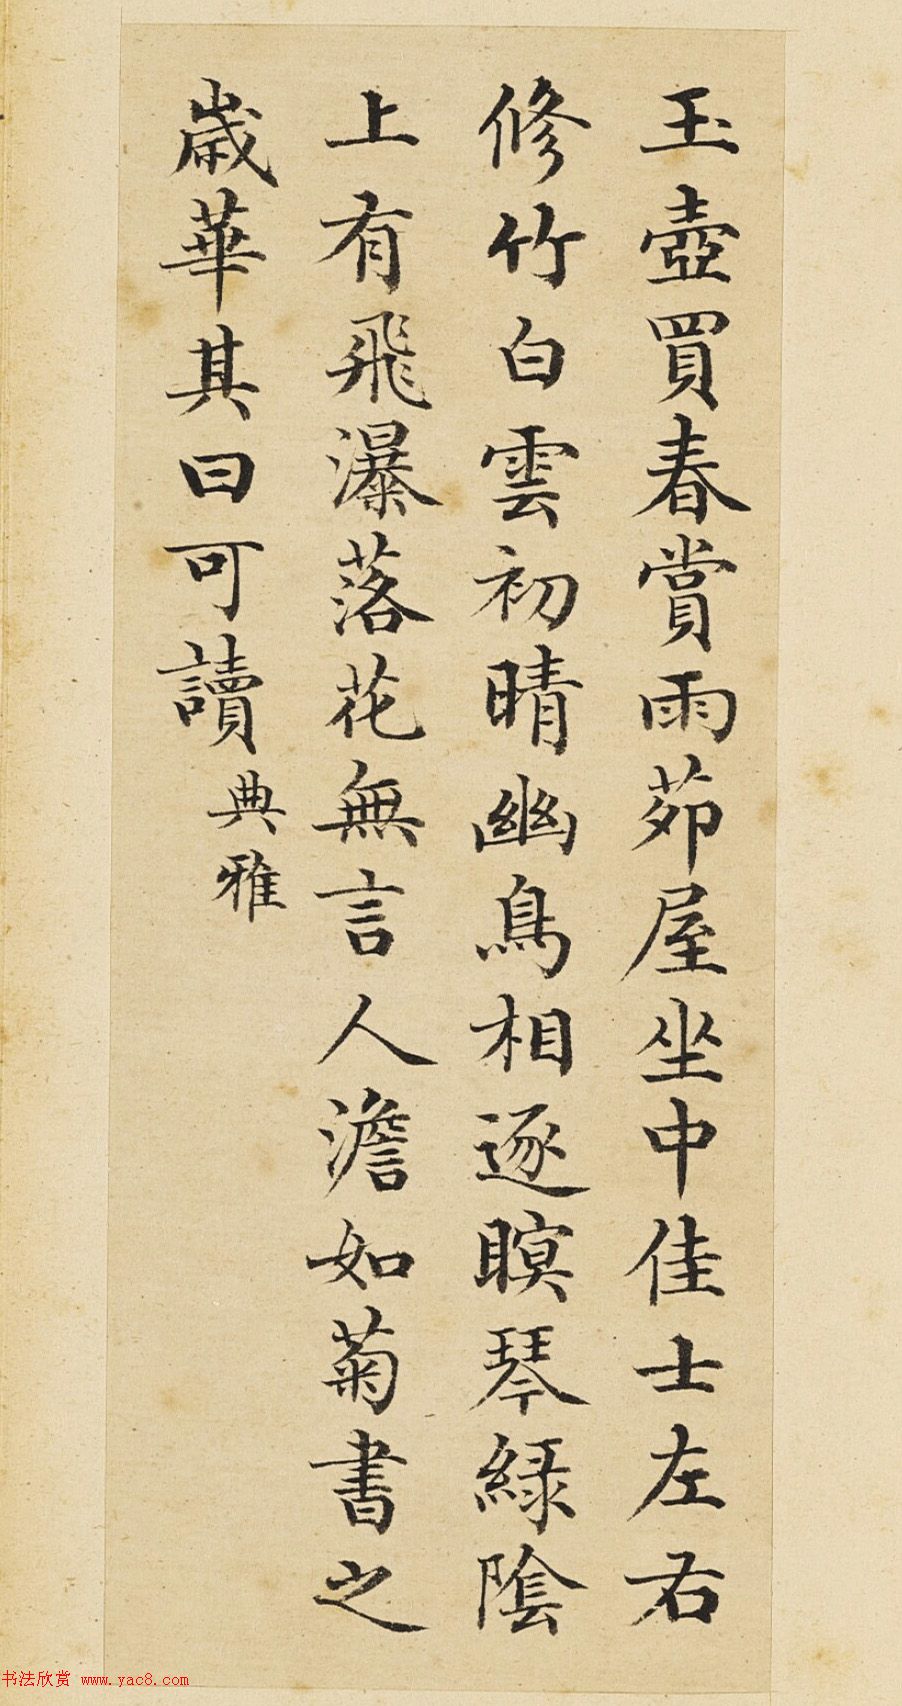 玉壺買春賞雨茆屋坐中佳士左右
修竹白雲初晴幽鳥相逐瞑琴綠陰
上有飛瀑落花無言人澹如菊書之
歲華其曰可讀典雅
书法欣赏 www.yac8.com